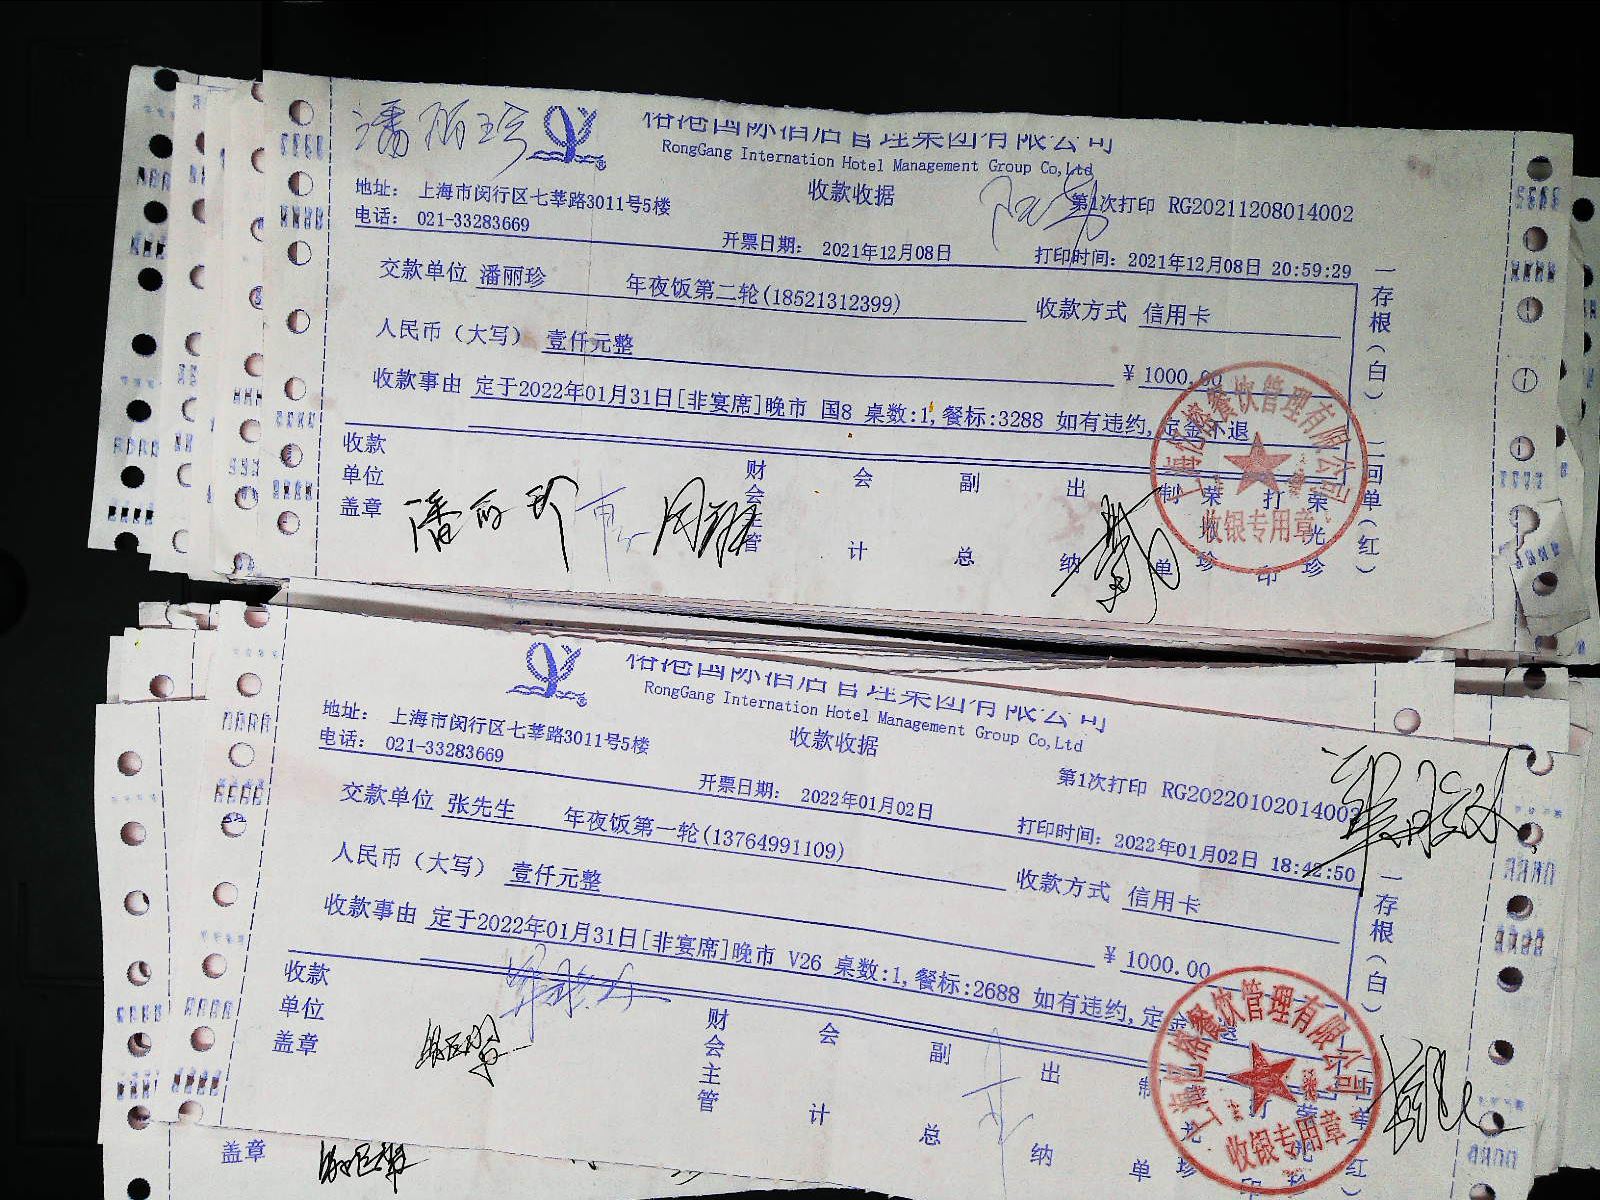 潘丽珍
裕港国际酒店管理集团有限公司
RongGang Internation Hotel Management Group Co,Ltd
地址： 上海市闵行区七莘路3011号5楼
收款收据
第1次打印 RG20211208014002
电话： 021-33283669
开票日期： 2021年12月08日
打印时间：2021年12月08日 20:59:29
交款单位 潘丽珍 年夜饭第二轮(18521312399) 收款方式 信用卡
人民币（大写） 壹仟元整 ￥1000.00
收款事由 定于2022年01月31日[非宴席]晚市 国8 桌数:1,餐标:3288 如有违约,定金不退
一存根（白） 二回单（红）
收款单位盖章
潘丽珍
财会主管 会计 副总 出纳 制单 打印
收银专用章
裕港国际酒店管理集团有限公司
RongGang Internation Hotel Management Group Co,Ltd
地址： 上海市闵行区七莘路3011号5楼
收款收据
第1次打印 RG2022010201400
电话： 021-33283669
开票日期： 2022年01月02日
打印时间：2022年01月02日 18:42:50
交款单位 张先生 年夜饭第一轮(13764991109) 收款方式 信用卡
人民币（大写） 壹仟元整 ￥1000.00
收款事由 定于2022年01月31日[非宴席]晚市 V26 桌数:1,餐标:2688 如有违约,定金不退
一存根（白）
收款单位盖章
财会主管 会计 副总 出纳 制单
收银专用章
盖章